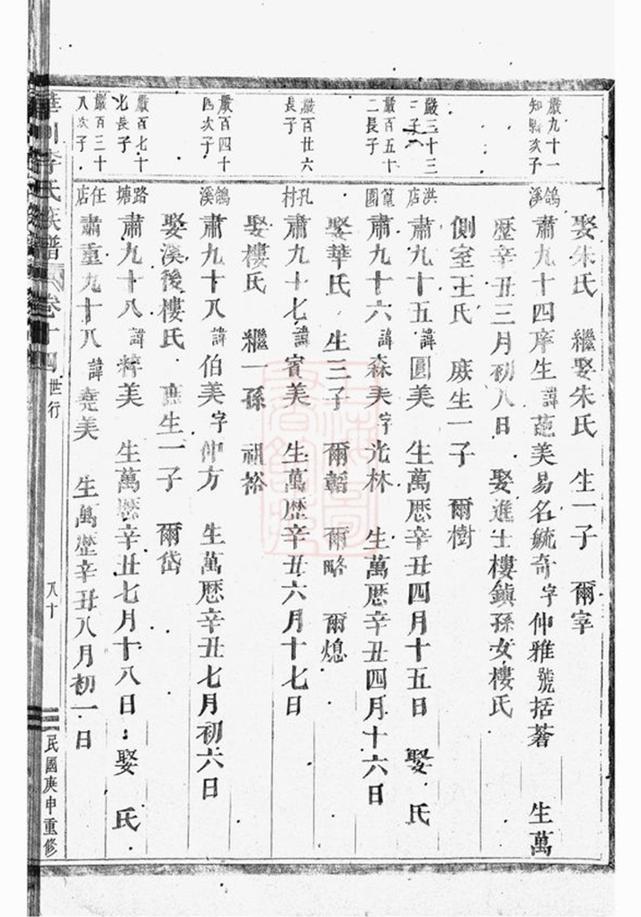 嚴九十一
知縣次子
嚴三十三
三子
嚴百五十
二長子
嚴百廿六
長子
嚴百四十
四次子
嚴百七十
九長子
嚴百三十
八次子
娶朱氏 繼娶朱氏 生一子 爾宰
鴿溪 肅九十四庠生 諱 美易名毓奇字仲雅號括蒼 生萬
歷辛丑三月初八日 娶進士樓鎮孫女樓氏
側室王氏 庶生一子 爾樹
洪店 肅九十五 諱圓美 生萬歷辛丑四月十五日 娶 氏
篁園 肅九十六 諱森美字光林 生萬歷辛丑四月十六日
娶華氏 生三子 爾韜 爾略 爾熄
孔村 肅九十七 諱賓美 生萬歷辛丑六月十七日
娶樓氏 繼一孫 祖裕
鴿溪 肅九十八 諱伯美字仲方 生萬歷辛丑七月初六日
娶溪後樓氏 庶生一子 爾岱
路塘 肅九十八 諱粹美 生萬歷辛丑七月十八日 娶 氏
任店 肅重九十八 諱堯美 生萬歷辛丑八月初一日
李氏族譜 卷十四 世行 八十 民國庚申重修